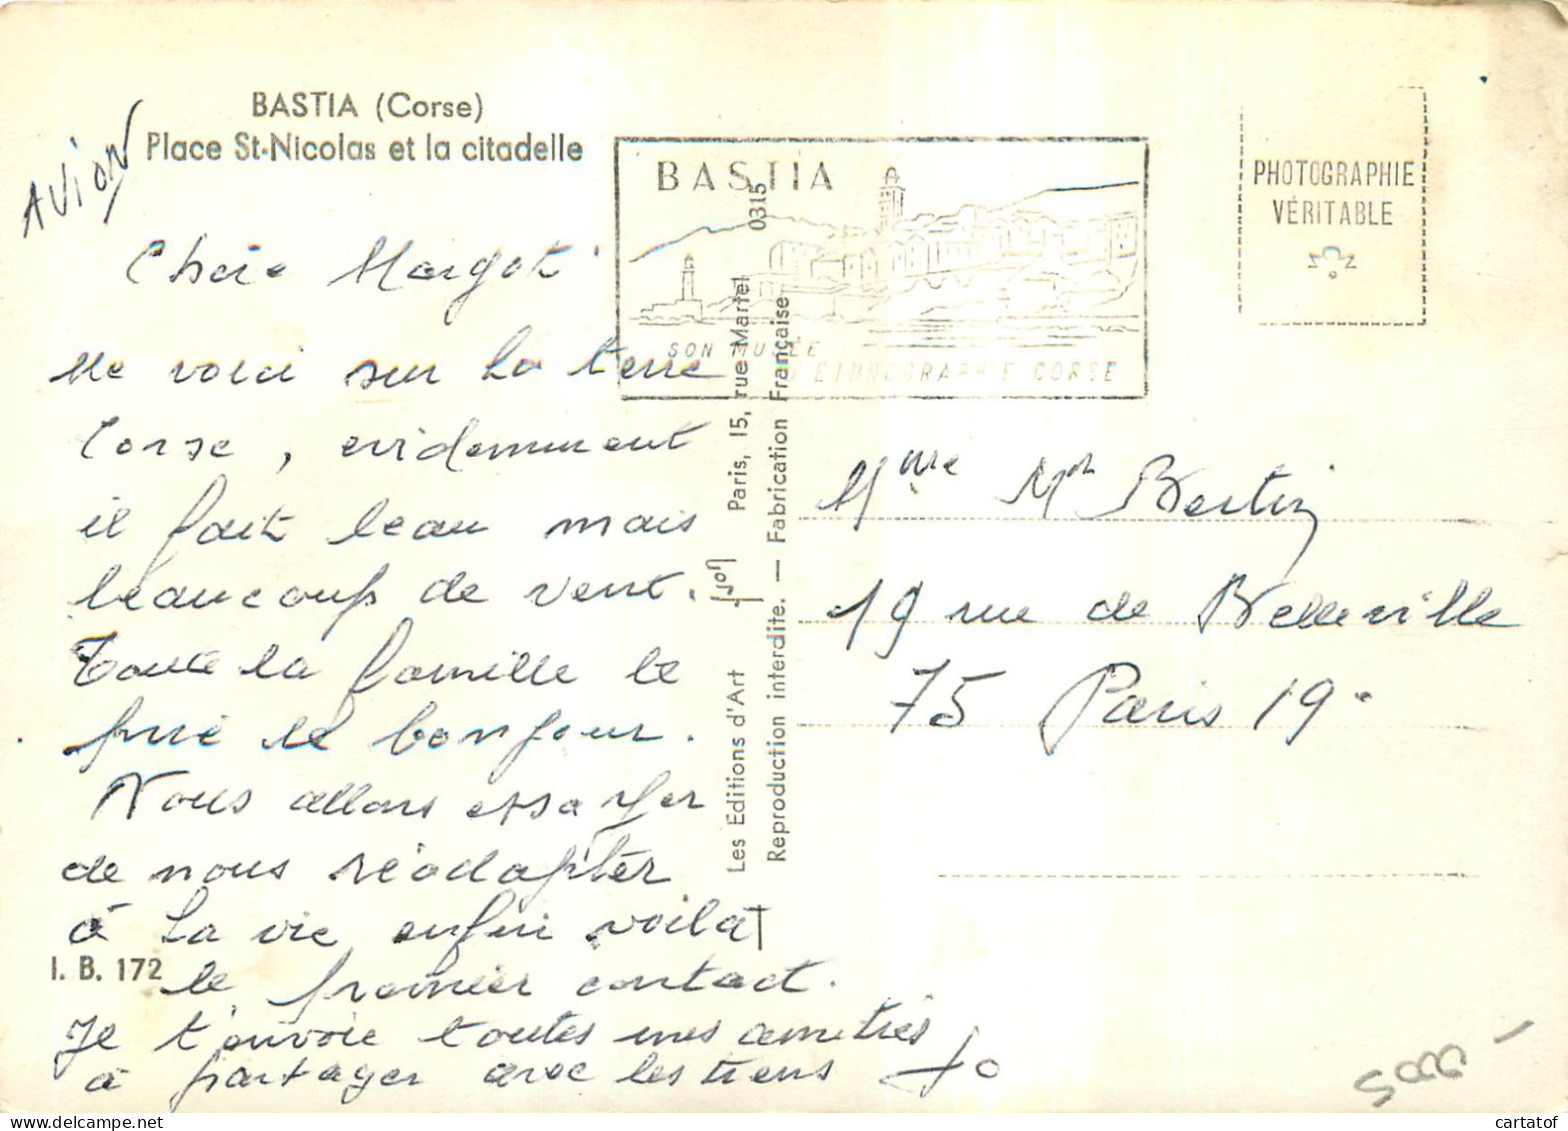 BASTIA (Corse)
Place St-Nicolas et la citadelle
AVION
Chère Margot
Me voici sur la terre
Corse, evidemment
il fait beau mais
beaucoup de vent.
Toute la famille te
fait le bonjour.
Nous allons essayer
de nous réadapter
à la vie enfin voilà
le premier contact.
Je t'envoie toutes mes amitiés
à partager avec les tiens Jo
I. B. 172
BASTIA
SON MUSÉE
D'ETHNOGRAPHIE CORSE
Les Editions d'Art Yvon Paris, 15, rue Martel 0315
Reproduction interdite. — Fabrication Française
PHOTOGRAPHIE
VÉRITABLE
Mme Mt Bertin
19 rue de Belleville
75 Paris 19e
cartatof